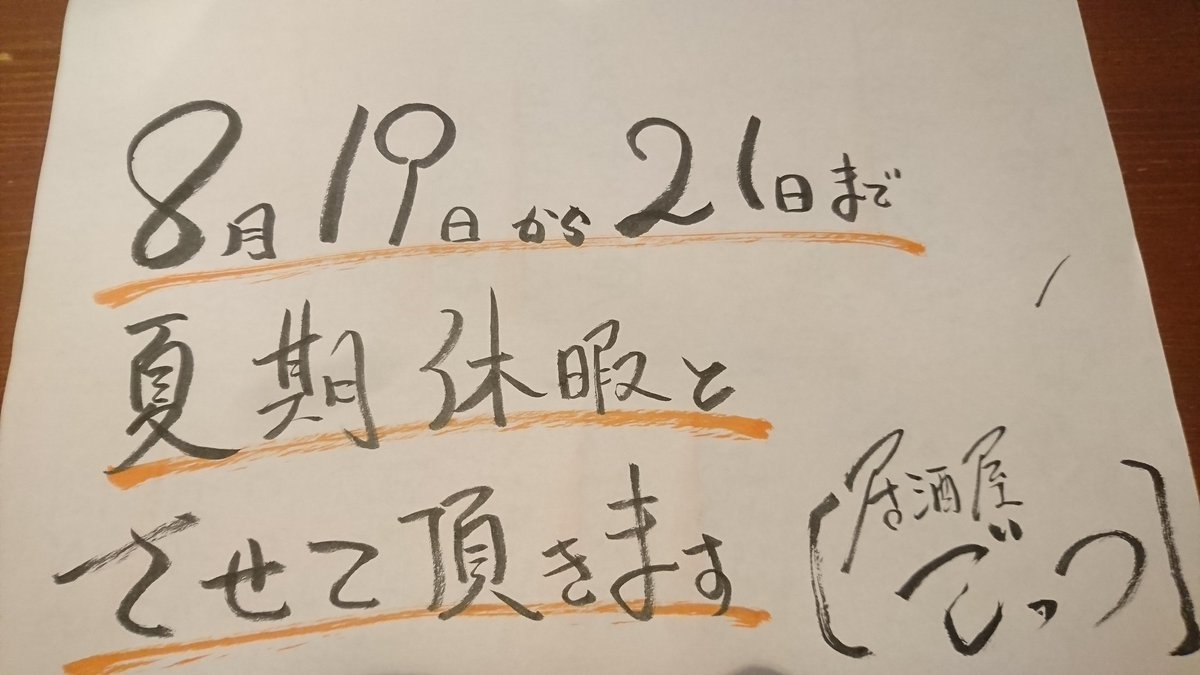 8月19日から21日まで
夏期休暇と
させて頂きます
居酒屋
でっつ